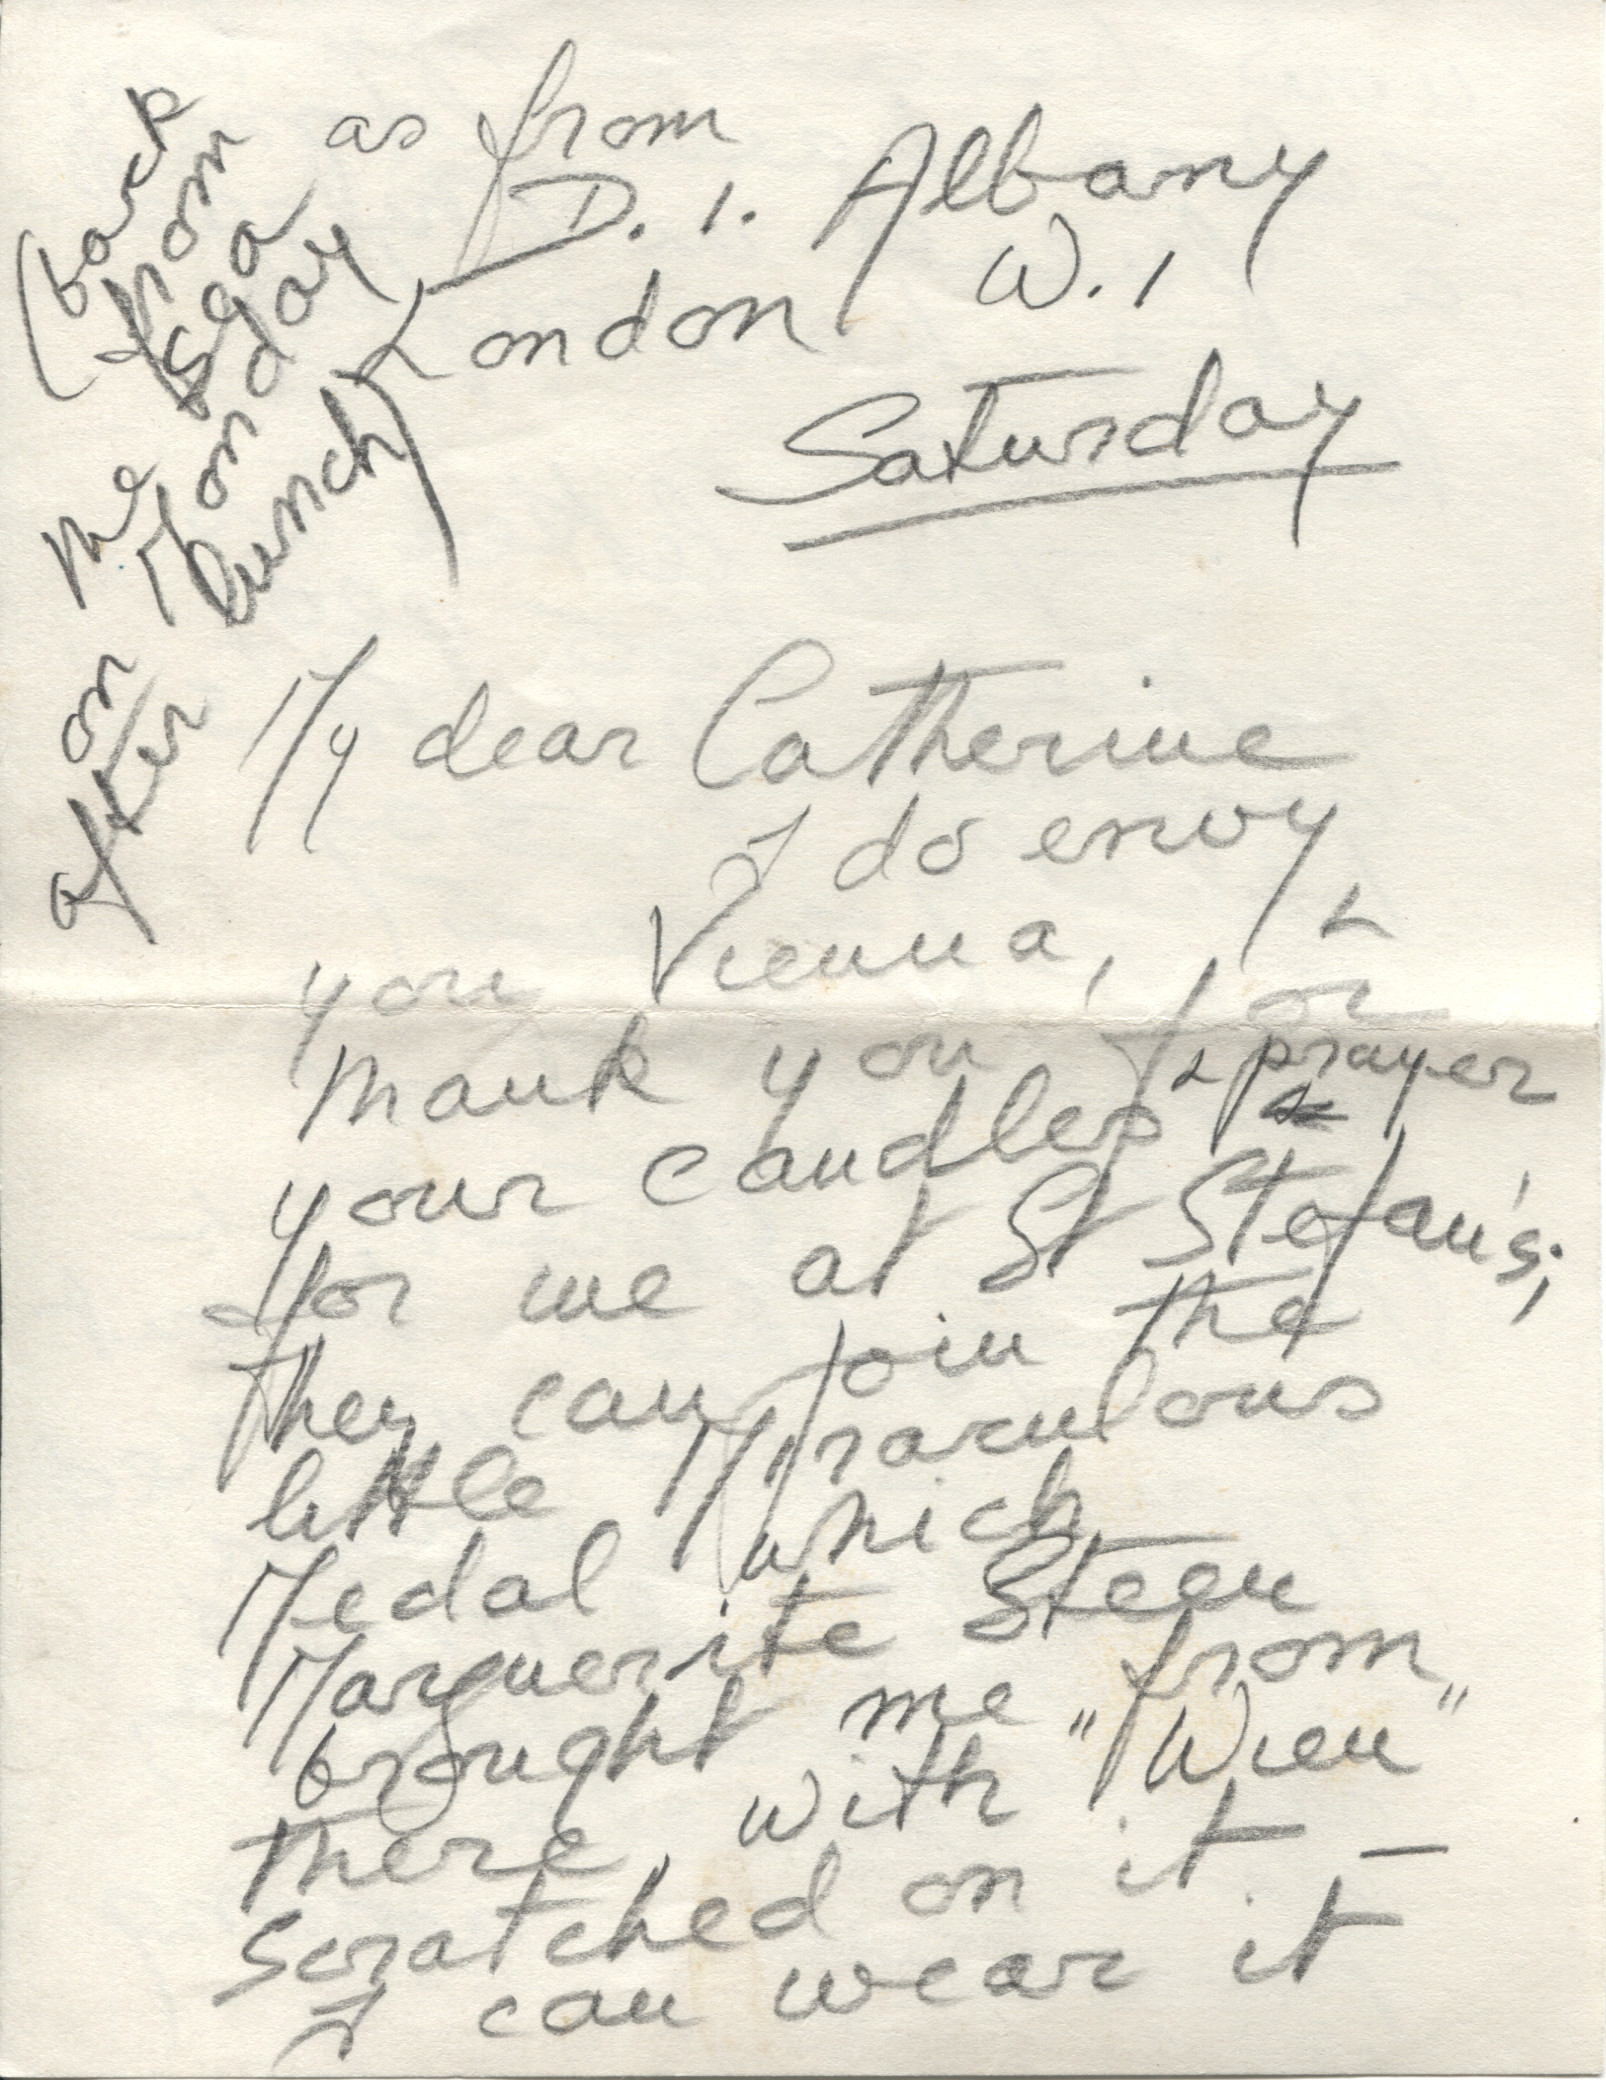 as from
D. 1. Albany
London W. 1
Saturday
(back
from
the sea
on Monday
after lunch)
My dear Catherine
I do envy
you Vienna, &
thank you for
your candles & prayer
for me at St Stefan's;
they can join the
little Miraculous
Medal which
Marguerite Steen
brought me from
there, with "Wien"
scratched on it —
I can wear it